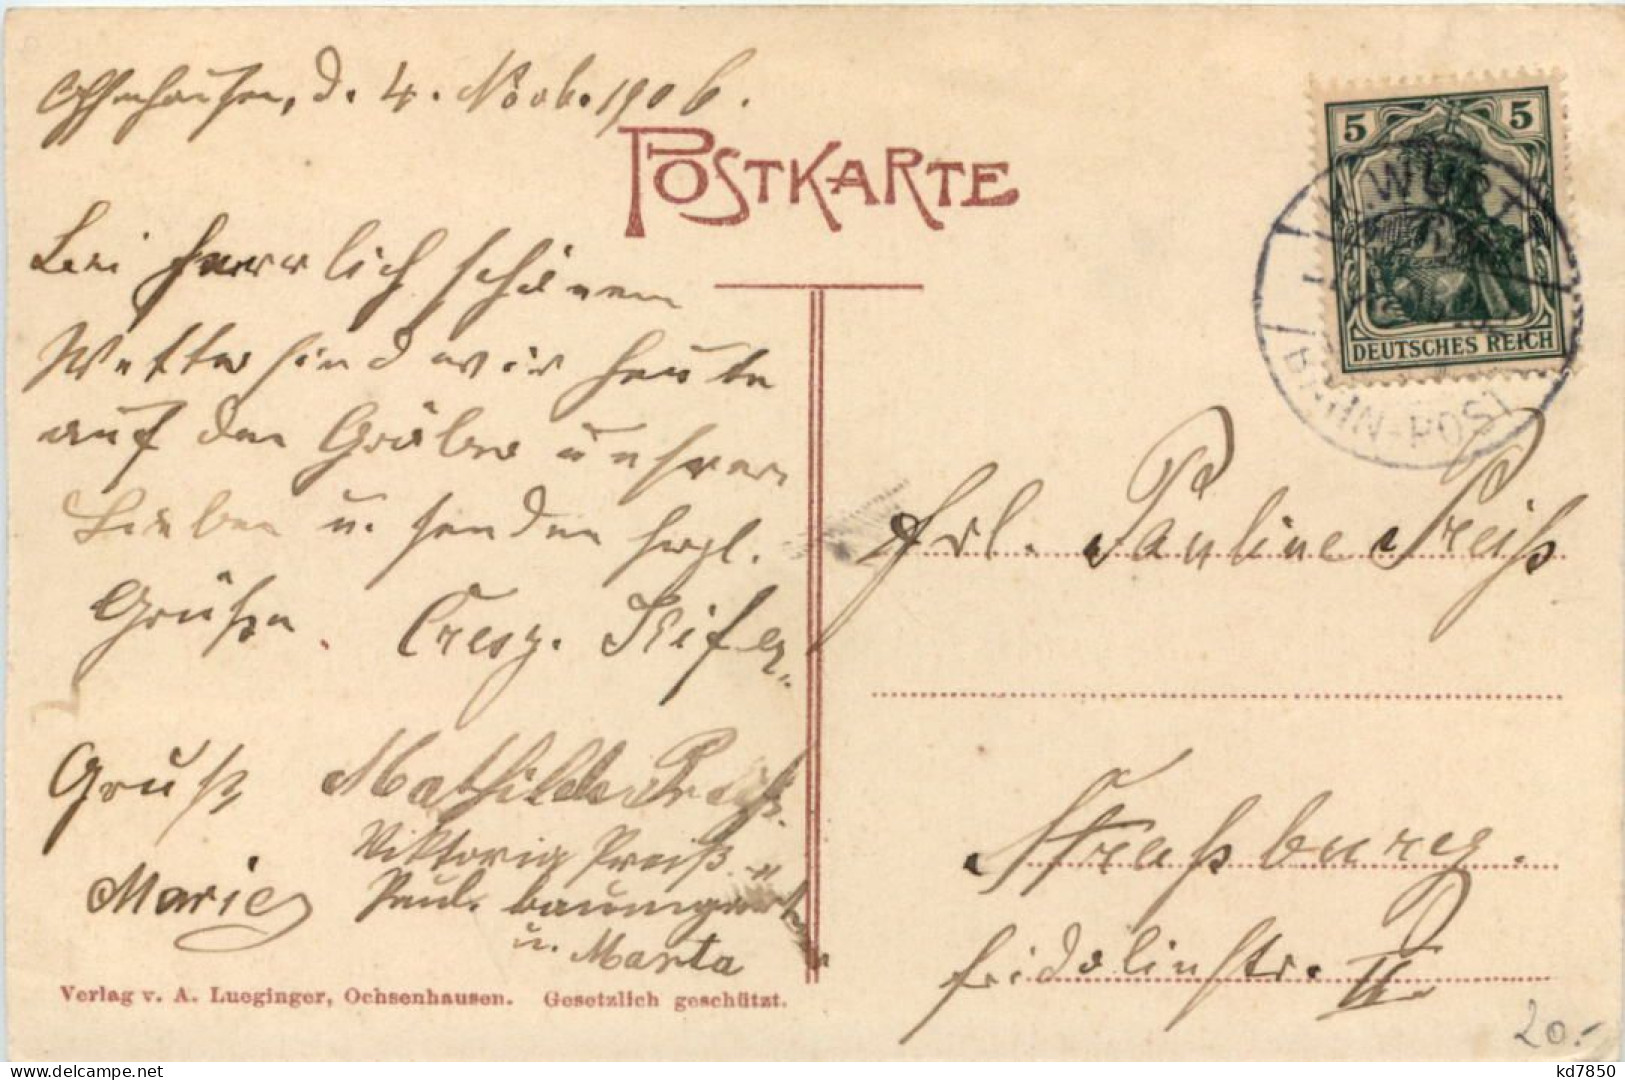 Ochsenhausen, d. 4. Novb. 1906.
POSTKARTE
Bei herrlich schönem
Wetter sind wir heute
auf den Gräber unserer
Lieben u. senden herzl.
Grüße. Cresz.
Gruß Mathilde Preiß.
Viktoria Preiß
Marie Paul. Baumgart
u. Marta
Verlag v. A. Lueginger, Ochsenhausen. Gesetzlich geschützt.
5 5
DEUTSCHES REICH
K. WÜRTT.
BAHN-POST
Frl. Pauline Preiß
Straßburg.
Fridolinstr. II.
20.-
kd7850